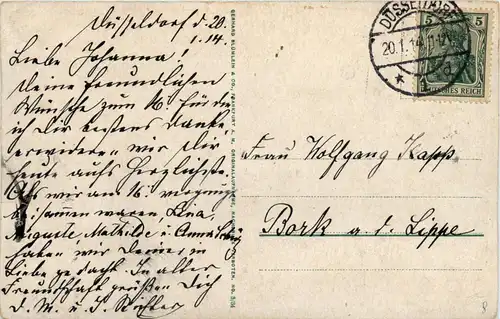 Düsseldorf d. 20.
1.14.
Liebe Johanna!
Deine freundlichen
Wünsche zum 16. für die
ich Dir bestens danke,
erwidern wir Dir
heute aufs Herzlichste.
Als wir am 16. vergnügt
zusammen waren, Lina,
Auguste, Mathilde u. Anna
haben wir Deiner in
Liebe gedacht. In alter
Freundschaft grüßen Dich
d. M. u. J. Richter
GERHARD BLÜMLEIN & CO., FRANKFURT A. M.
DÜSSELDORF
20.1.14
5 5
DEUTSCHES REICH
Frau Wolfgang Kapp
Bork a. d. Lippe